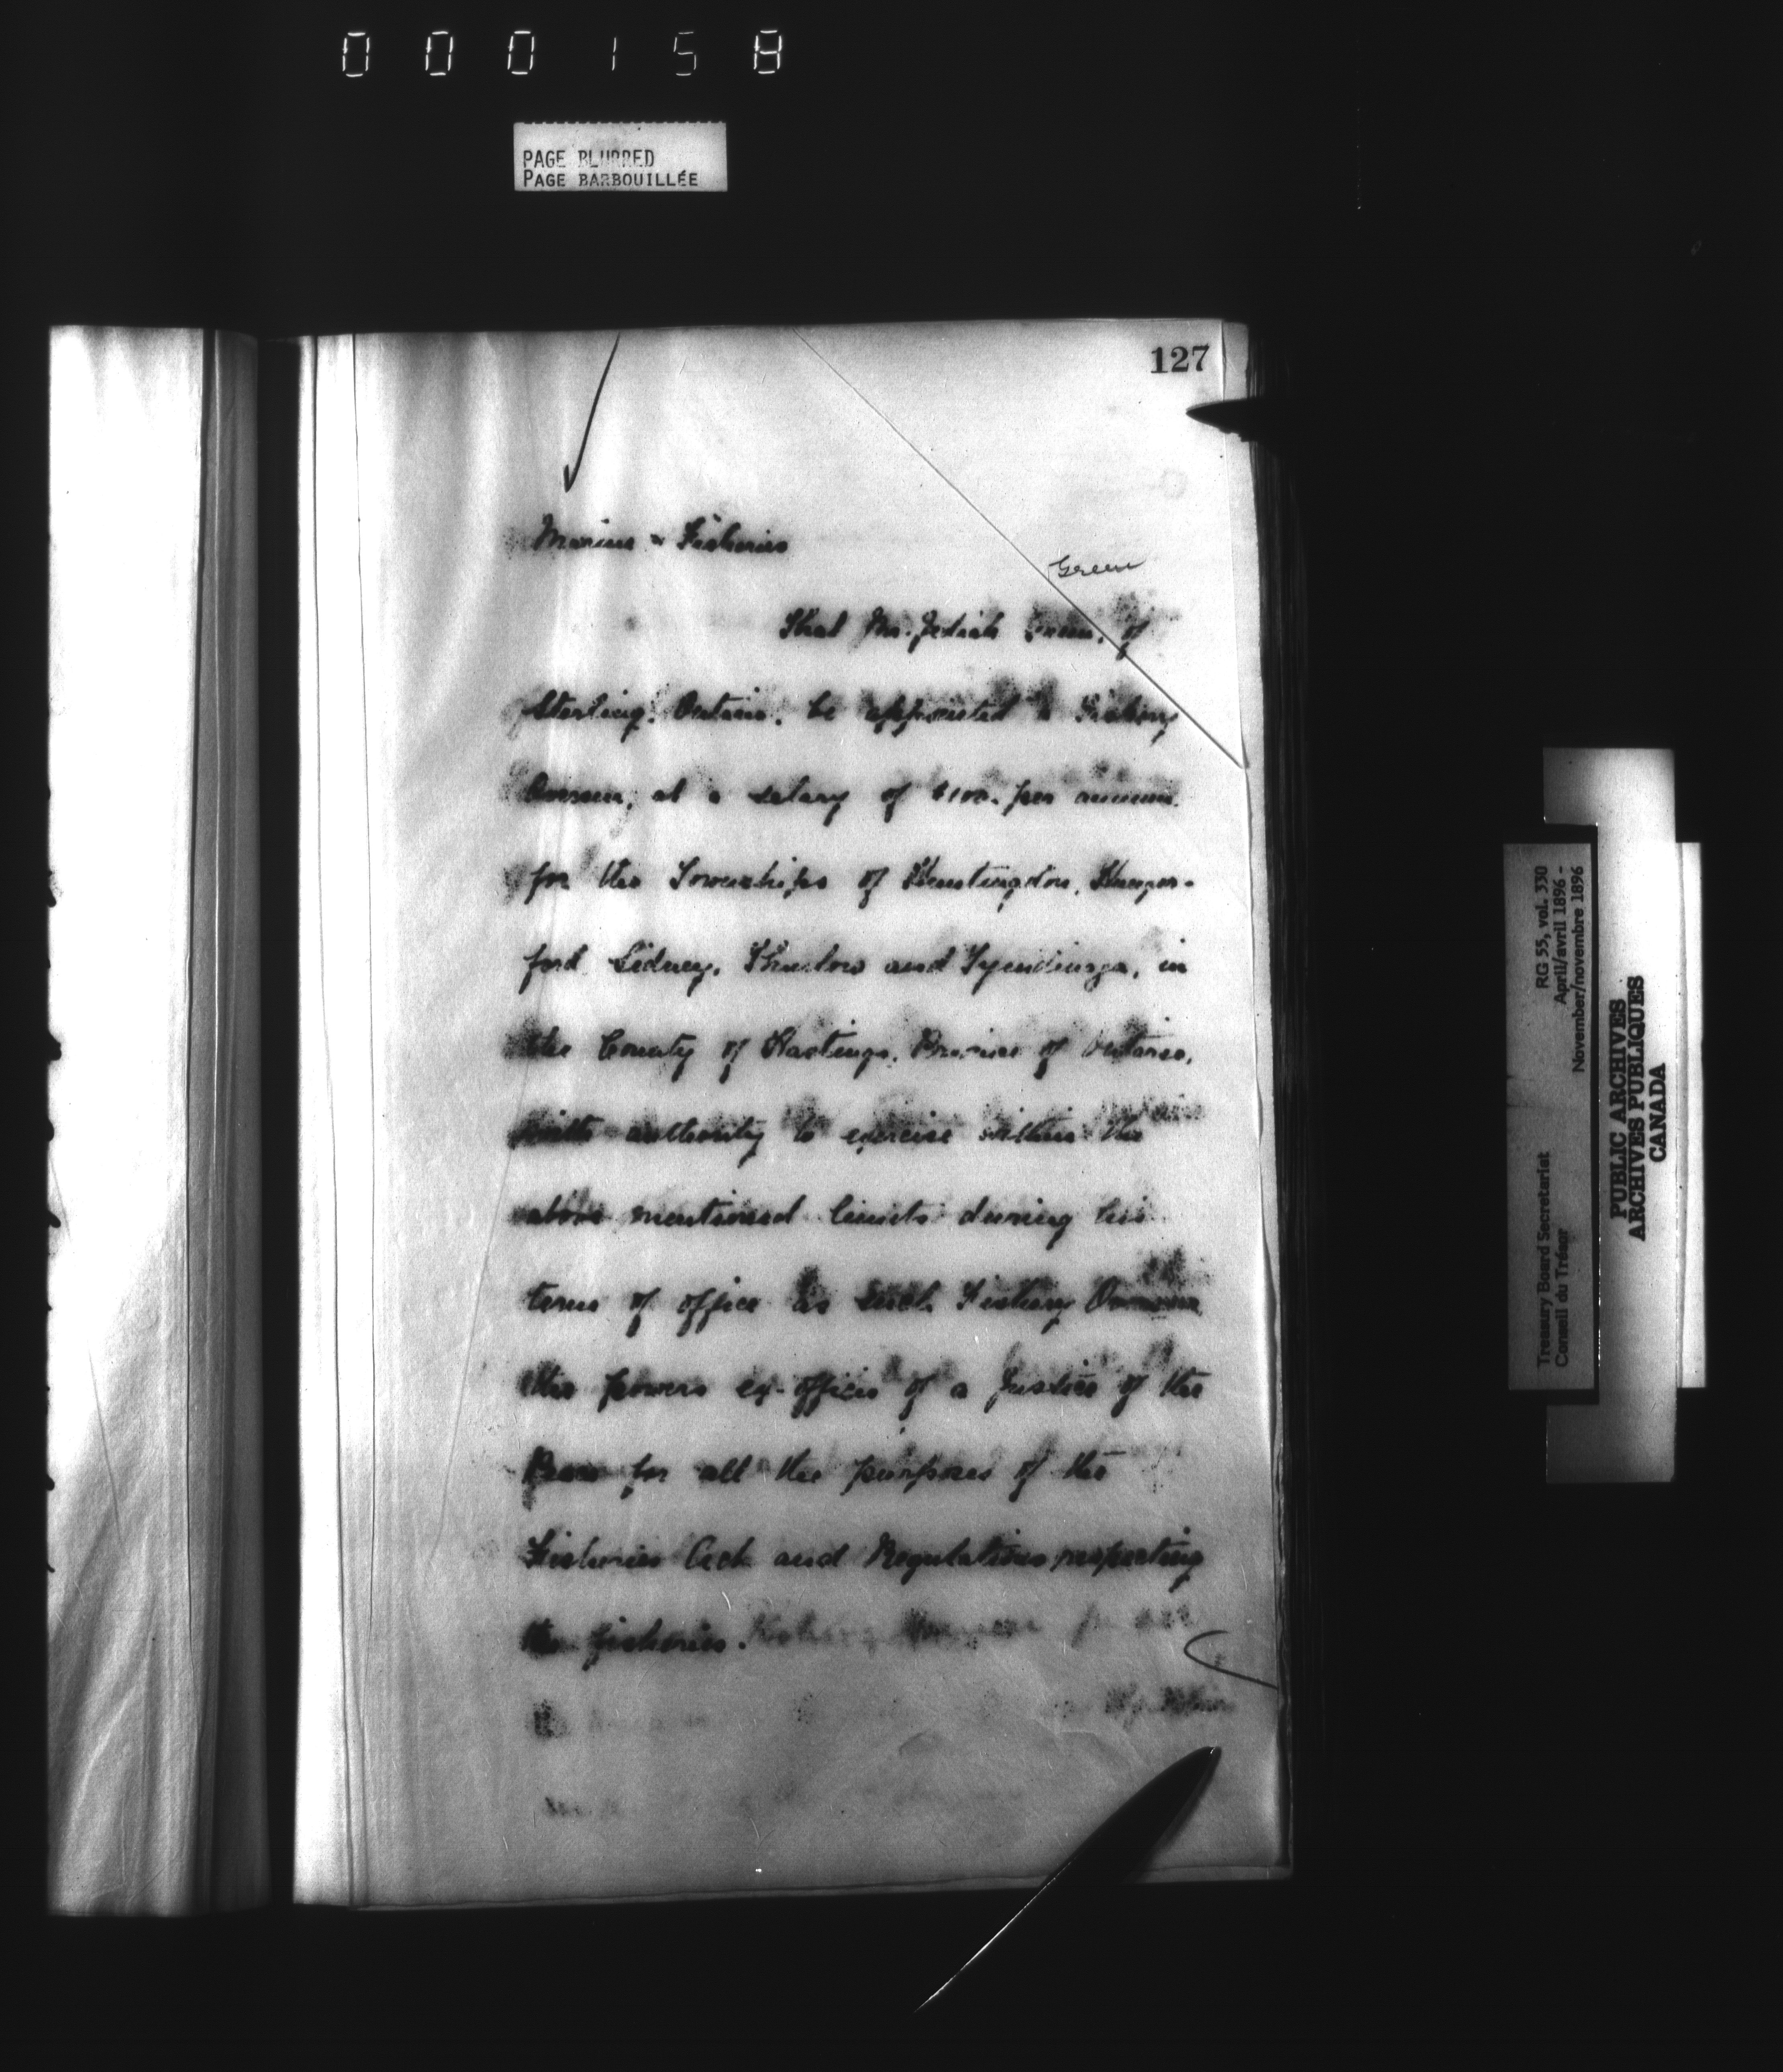 000158
PAGE BLURRED
PAGE BARBOUILLÉE
127
Marine & Fisheries
Green
That Mr. Jediah Green, of
Sterling, Ontario, be appointed a Fishery
Overseer, at a salary of $100. per annum.
for the Townships of Huntingdon, Hunger-
ford Sidney, Thurlow and Tyendinaga, in
the County of Hastings, Province of Ontario,
with authority to exercise within the
above mentioned limits during his
term of office as such Fishery Overseer
the powers ex-officio of a Justice of the
Peace for all the purposes of the
Fisheries Act and Regulations respecting
the fisheries.
Treasury Board Secretariat RG 55, vol. 330
Conseil du Trésor April/avril 1896 -
November/novembre 1896
PUBLIC ARCHIVES
ARCHIVES PUBLIQUES
CANADA